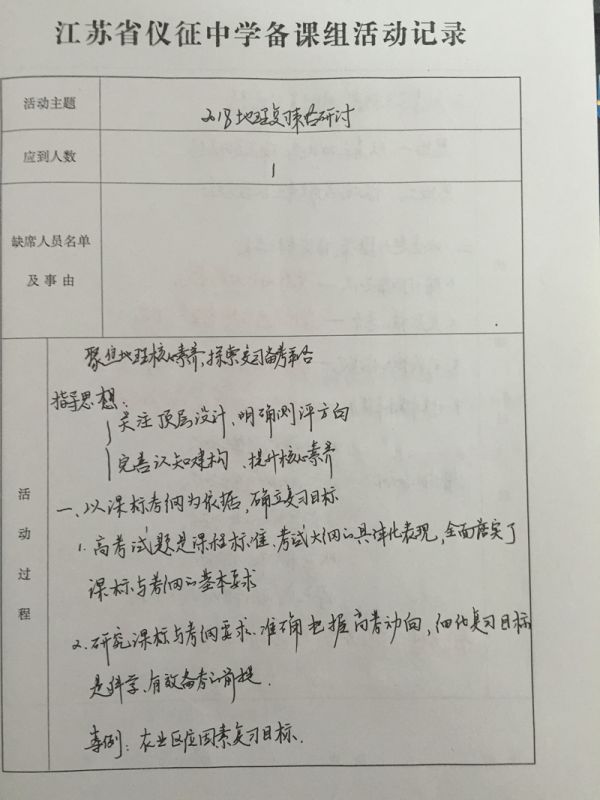 江苏省仪征中学备课组活动记录
活动主题
2018地理复习策略研讨
应到人数
1
缺席人员名单
及事由
聚焦地理核心素养,探索复习备考策略
指导思想:
关注顶层设计、明确测评方向
完善认知建构、提升核心素养
活动过程
一、以课标考纲为依据,确立复习目标
1. 高考试题是课程标准、考试大纲的具体化表现,全面落实了
课标与考纲的基本要求
2. 研究课标与考纲要求、准确把握高考动向,细化复习目标
是科学、有效备考的前提.
案例:农业区位因素复习目标.